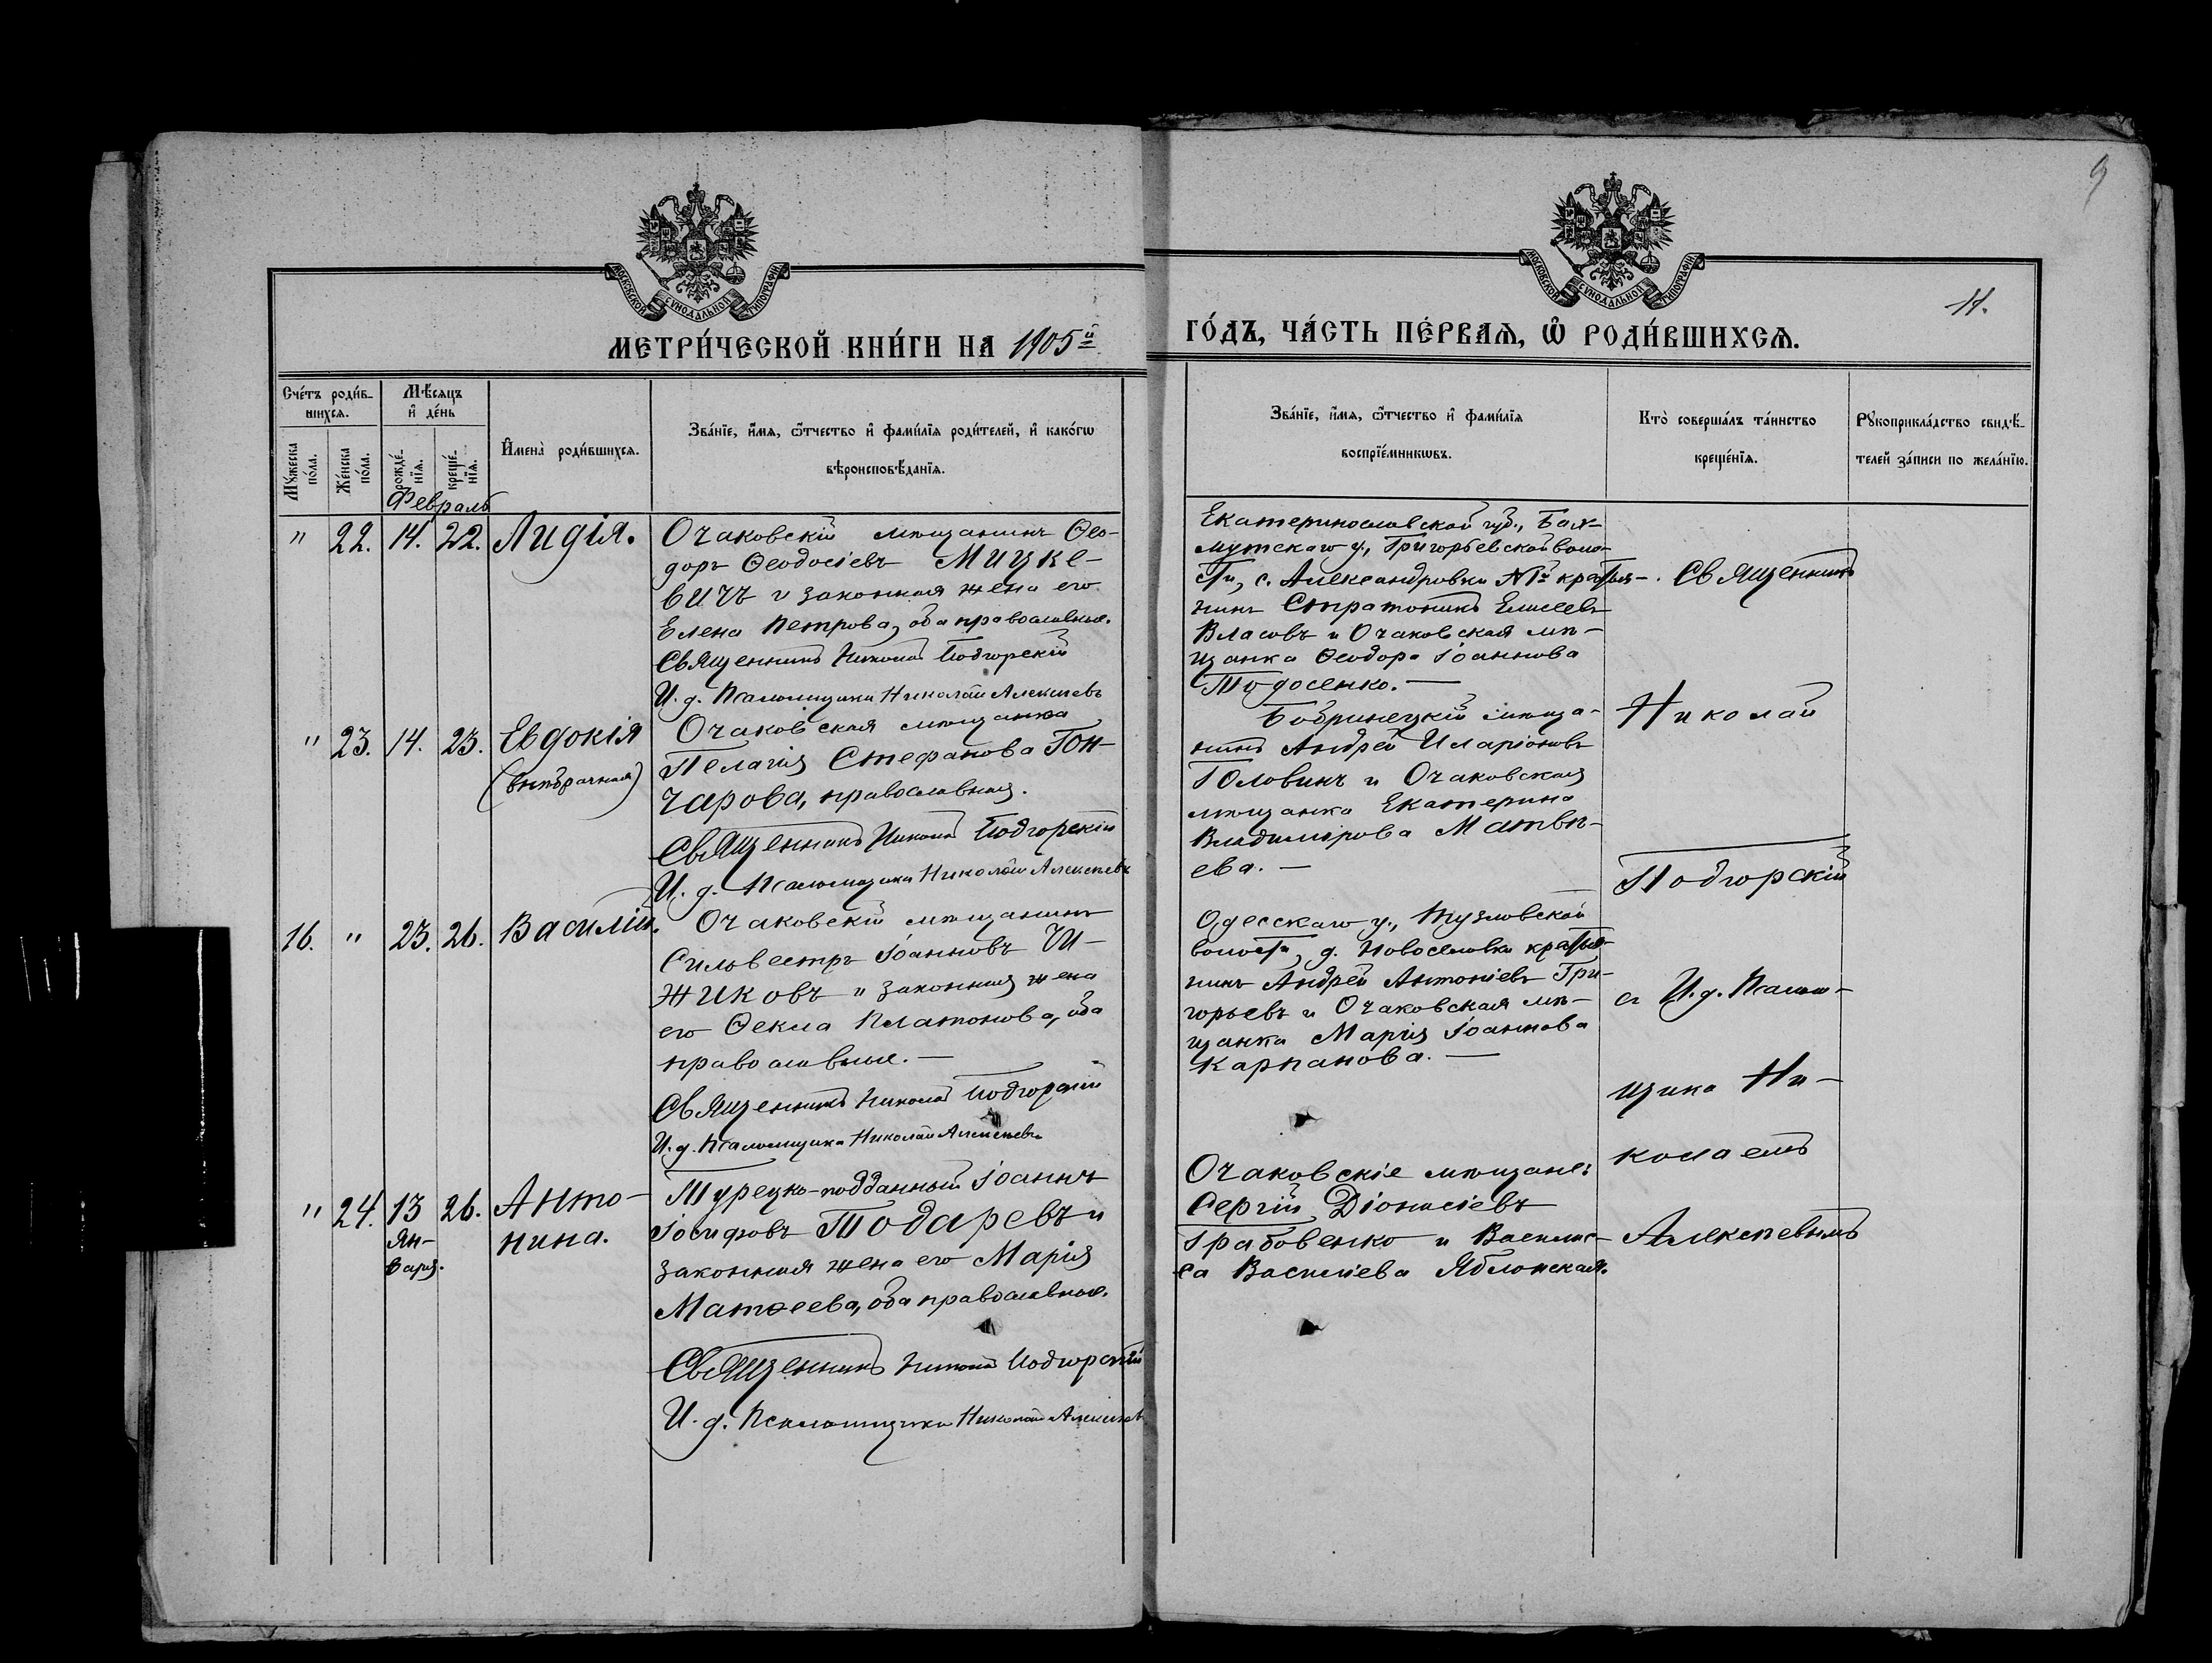 9
11.
МОСКОВСКОЙ СУНОДАЛЬНОЙ ТИПОГРАФІИ
МОСКОВСКОЙ СУНОДАЛЬНОЙ ТИПОГРАФІИ
МЕТРИ́ЧЕСКОЙ КНИ́ГИ НА 1905й
ГО́ДЪ, ЧА́СТЬ ПЕ́РВАѦ, Ѿ РОДИ́ВШИХСѦ.
Сче́тъ роди́в-
шихсѧ.
Мꙋ́жеска
по́ла.
Же́нска
по́ла.
Мѣ́сѧцъ
и҆ де́нь
рожде́-
нїѧ.
креще́-
нїѧ.
И҆мена̀ роди́вшихсѧ.
Зва́нїе, и҆́мѧ, ѻ҆́тчество и҆ фами́лїѧ роди́телей, и҆ како́гѡ
вѣроисповѣ́данїѧ.
Зва́нїе, и҆́мѧ, ѻ҆́тчество и҆ фами́лїѧ
воспрїе́мникѡвъ.
Кто̀ соверша́лъ та́инство
креще́нїѧ.
Рꙋкоприкла́дство свидѣ́-
телей за́писи по жела́нїю.
Февраль
" 22. 14. 22. Лидія.
Очаковскій мѣщанинъ Ѳео-
доръ Ѳеодосіевъ Мицке-
вичъ и законная жена его
Елена Петрова, оба православные.
Священникъ Николай Подгорскій
И. д. Псаломщика Николай Алексѣевъ
Екатеринославской губ., Бах-
мутскаго у., Григорьевской воло-
сти, с. Александровки №1й крестья-
нинъ Стратоникъ Елисеевъ
Власовъ и Очаковская мѣ-
щанка Ѳеодора Іоаннова
Тодосенко. —
" 23. 14. 23. Евдокія
(внѣбрачная)
Очаковская мѣщанка
Пелагія Стефанова Гон-
чарова, православная.
Священникъ Николай Подгорскій
И. д. Псаломщика Николай Алексѣевъ
Бобринецкій мѣща-
нинъ Андрей Иларіоновъ
Головинъ и Очаковская
мѣщанка Екатерина
Владимірова Матвѣ-
ева. —
16. " 23. 26. Василій.
Очаковскій мѣщанинъ
Сильвестръ Іоанновъ Чи-
жиковъ и законная жена
его Ѳекла Платонова, оба
православные. —
Священникъ Николай Подгорскій
И. д. Псаломщика Николай Алексѣевъ
Одесскаго у., Тузловской
волости, д. Новоселовки крестья-
нинъ Андрей Антоніевъ Гри-
горьевъ и Очаковская мѣ-
щанка Марія Іоаннова
Карпанова. —
" 24. 13 26. Анто-
Ян-
варя.
нина.
Турецко-подданный Іоаннъ
Іосифовъ Тодаревъ и
законная жена его Марія
Матѳеева, оба православные.
Священникъ Николай Подгорскій
И. д. Псаломщика Николай Алексѣевъ
Очаковскіе мѣщане:
Сергій Діонисіевъ
Грабовенко и Васили-
са Василіева Яблонская.
Священникъ
Николай
Подгорскій
съ И. д. Псалом-
щика Ни-
колаемъ
Алексѣевымъ